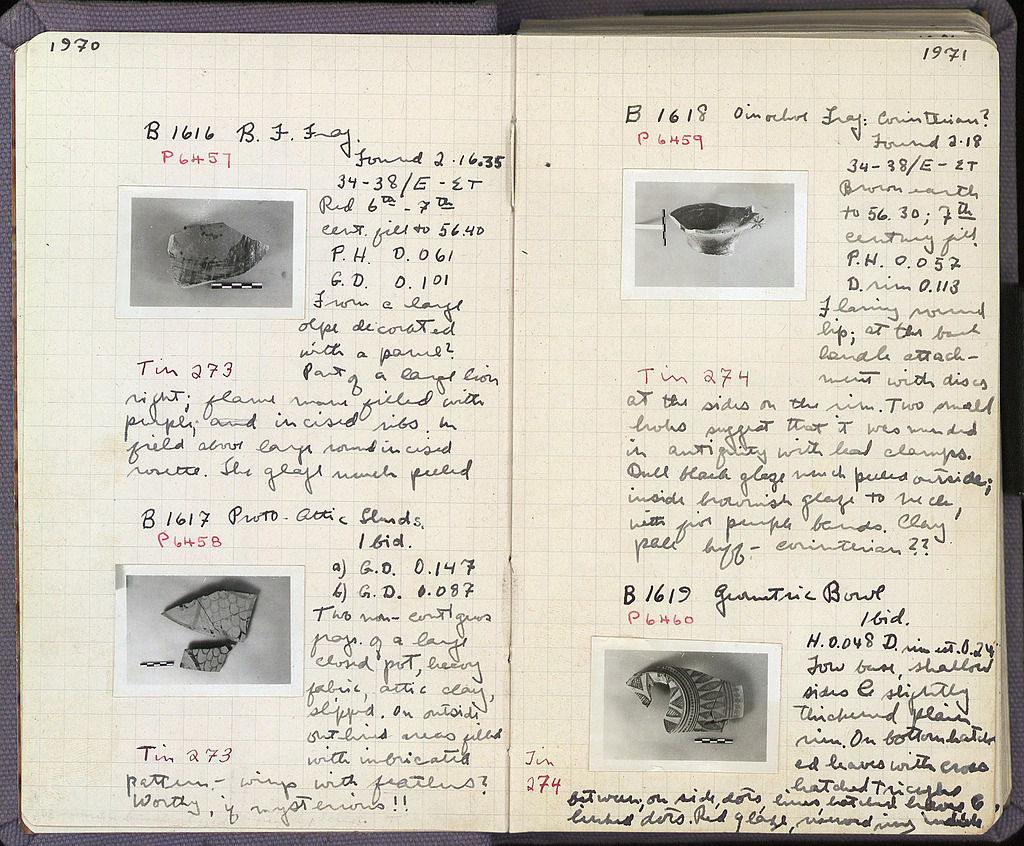 1970
B 1616 B. F. Frag.
P6457
Found 2.16.35
34-38/E-ΣΤ
Red 6th - 7th
cent. fill to 56.40
P.H. 0.061
G.D. 0.101
From a large
olpe decorated
with a panel?
Tin 273
Part of a large lion
right; flame mane filled with
purple; and incised ribs. In
field above large round incised
rosette. The glaze much peeled
B 1617 Proto-Attic Sherds.
P6458
Ibid.
a) G.D. 0.147
b) G.D. 0.087
Two non-contiguous
frags. of a large
closed pot, heavy
fabric, attic clay,
slipped. On outside
outlined areas filled
Tin 273
with imbricated
pattern - wings with feathers?
Worthy, if mysterious!!
1971
B 1618 Oinochoe Frag: Corinthian?
P6459
Found 2.18
34-38/E-ΣΤ
Brown earth
to 56.30; 7th
century fill.
P.H. 0.057
D. rim 0.113
Flaring round
lip; at the back
handle attach-
Tin 274
ment with discs
at the sides on the rim. Two small
holes suggest that it was mended
in antiquity with lead clamps.
Dull black glaze much peeled outside;
inside brownish glaze to neck,
with purple bands. Clay
pale buff - corinthian??
B 1619 Geometric Bowl
P6460
Ibid.
H. 0.048 D. rim est. 0.24
Low base, shallow
sides & slightly
thickened plain
rim. On bottom hatch
ed leaves with cross
Tin
274
hatched triangles
between; on side, dots, lines, hatched leaves &
linked dots. Red glaze,